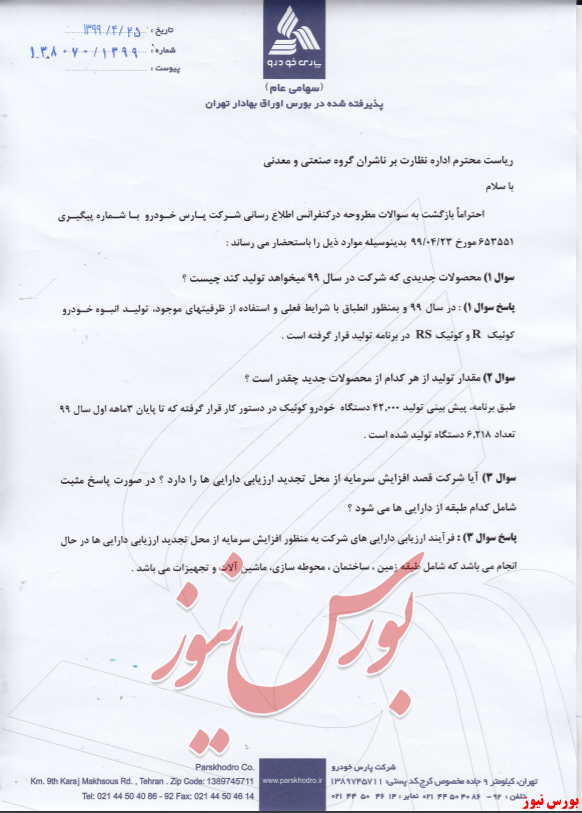 تاریخ : ۱۳۹۹/۴/۲۵
شماره : ۱۳۸۰۷۰/۱۳۹۹
پیوست :
پارس خودرو
(سهامی عام)
پذیرفته شده در بورس اوراق بهادار تهران
ریاست محترم اداره نظارت بر ناشران گروه صنعتی و معدنی
با سلام
احتراماً بازگشت به سوالات مطروحه درکنفرانس اطلاع رسانی شرکت پارس خودرو با شماره پیگیری
۶۵۳۵۵۱ مورخ ۹۹/۰۴/۲۳ بدینوسیله موارد ذیل را باستحضار می رساند :
سوال ۱) محصولات جدیدی که شرکت در سال ۹۹ میخواهد تولید کند چیست ؟
پاسخ سوال ۱) : در سال ۹۹ و بمنظور انطباق با شرایط فعلی و استفاده از ظرفیتهای موجود، تولید انبوه خودرو
کوئیک R و کوئیک RS در برنامه تولید قرار گرفته است .
سوال ۲) مقدار تولید از هر کدام از محصولات جدید چقدر است ؟
طبق برنامه، پیش بینی تولید ۴۲,۰۰۰ دستگاه خودرو کوئیک در دستور کار قرار گرفته که تا پایان ۳ماهه اول سال ۹۹
تعداد ۶,۲۱۸ دستگاه تولید شده است .
سوال ۳) آیا شرکت قصد افزایش سرمایه از محل تجدید ارزیابی دارایی ها را دارد ؟ در صورت پاسخ مثبت
شامل کدام طبقه از دارایی ها می شود ؟
پاسخ سوال ۳) : فرآیند ارزیابی دارایی های شرکت به منظور افزایش سرمایه از محل تجدید ارزیابی دارایی ها در حال
انجام می باشد که شامل طبقه زمین ، ساختمان ، محوطه سازی، ماشین آلات و تجهیزات می باشد .
بورس نیوز
شرکت پارس خودرو
تهران، کیلومتر ۹ جاده مخصوص کرج.کد پستی: ۱۳۸۹۷۴۵۷۱۱
تلفن : ۹۲- ۸۶ ۴۰ ۵۰ ۴۴ ۰۲۱ نمابر : ۱۴ ۴۶ ۵۰ ۴۴ ۰۲۱
www.parskhodro.ir
Parskhodro Co.
Km. 9th Karaj Makhsous Rd. , Tehran . Zip Code: 1389745711
Tel: 021 44 50 40 86 - 92 Fax: 021 44 50 46 14
بورس نیوز